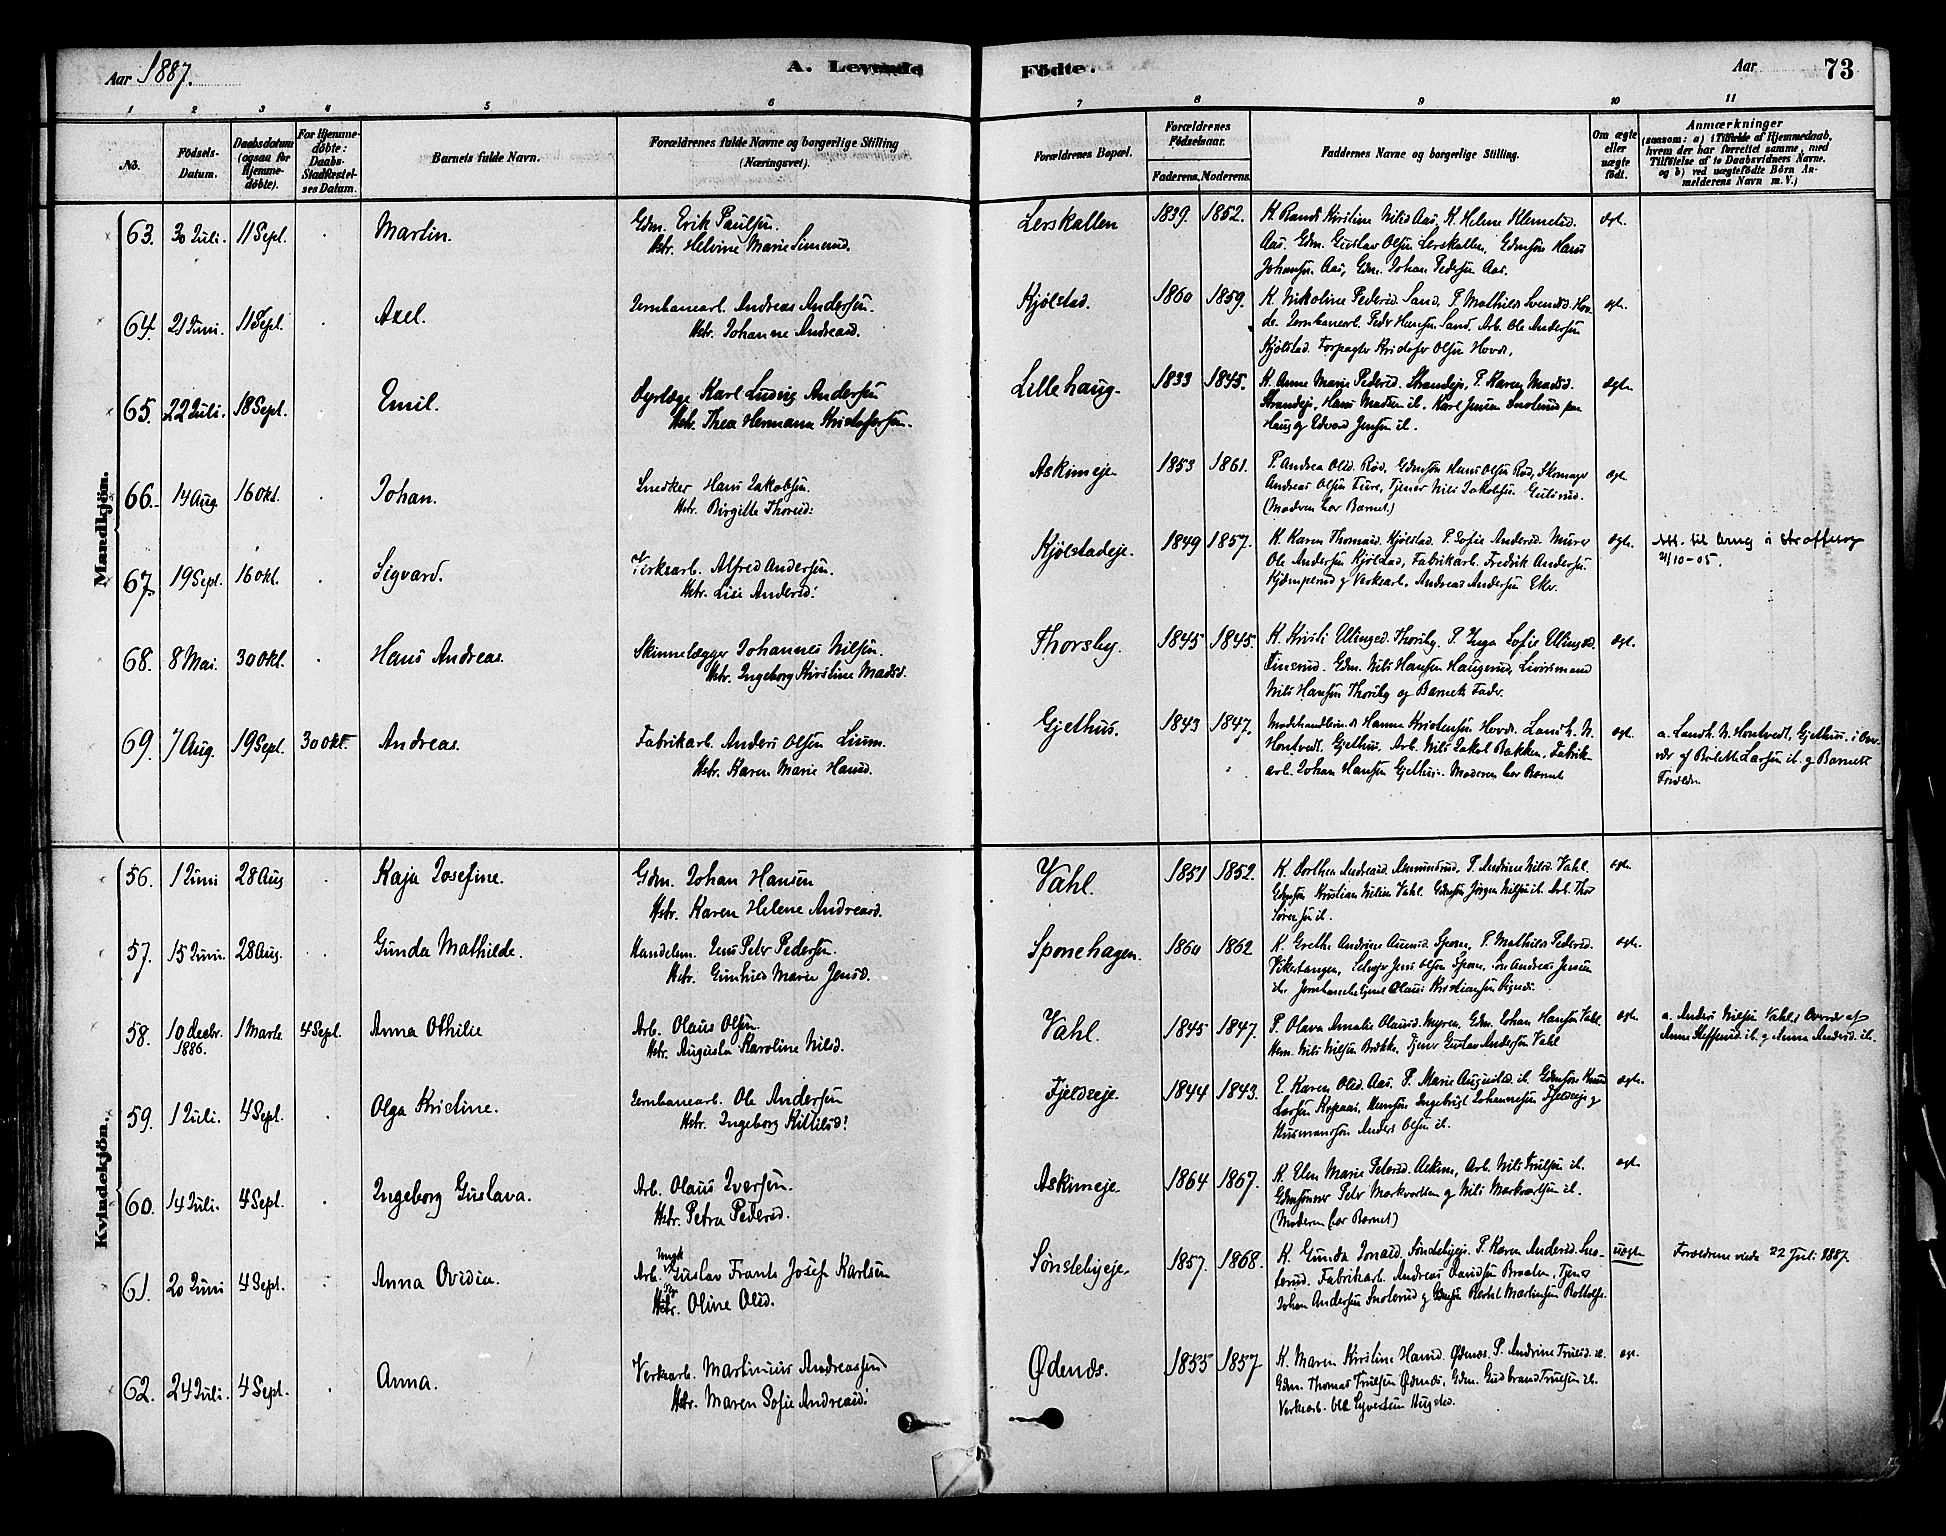 Aar 1887.
A. Levende
Födte.
Aar
73
1 2 3 4 5 6 7 8 9 10 11
No.
Födsels-Datum.
Daabsdatum (ogsaa for Hjemmedöbte).
For Hjemmedöbte: Daabs-Stadfæstelses Datum.
Barnets fulde Navn.
Forældrenes fulde Navne og borgerlige Stilling (Næringsvei).
Forældrenes Bopæl.
Forældrenes Födselsaar.
Faderens. Moderens.
Faddernes Navne og borgerlige Stilling.
Om ægte eller uægte födt.
Anmærkninger
(saasom: a) i Tilfælde af Hjemmedaab, hvem der har forrettet samme, med Tilföielse af to Daabsvidners Navne, og b) ved uægtefödte Börn Anmelderens Navn m. V.)
Mandkjön.
63. 30 Juli. 11 Sept. Martin. Gdm. Erik Paulsen.
Hstr. Helvine Marie Simensd.
Lerskallen 1839. 1852. K. Randi Kirstine Nilsd. Aas. K. Helene Klemetsd.
Aas. Gdm. Gustav Olsen Lerskallen. Gdmsøn Hans
Johansen Aas, Gdm. Johan Pedersen Aas. ægt.
64. 21 Juni. 11 Sept. Axel. Jernbanearb. Andreas Andersen.
Hstr. Johanne Andreasd.
Kjølstad. 1860 1859. K. Nikoline Pedersd. Sand, P. Mathilde Svendsd. Hov-
de. Jernbanearb. Peder Hansen Sand, Arb. Ole Andersen
Kjølstad. Forpagter Kristofer Olsen Hovde. ægt.
65. 22 Juli. 18 Sept. Emil. Dyrlæge Karl Ludvig Andersen
Hstr. Thea Hermana Kristofersen.
Lillehaug. 1833 1845. K. Anne Marie Pedersd. Strandeje, P. Karen Madsd.
Strandeje. Hans Madsen ib. Karl Jensen
Haug og Edvard Jensen ib. ægt.
66. 14 Aug. 16 Okt. Johan. Snedker Hans Jakobsen.
Hstr. Birgitte Thorsd:
Askimeje 1853 1861. P. Andrea Olsd. Rød, Gdmsøn Hans Olsen Rød, Skomager
Andreas Olsen Fure, Tjener Nils Jakobsen Gulsrud.
(Moderen bar Barnet) ægt.
67. 19 Sept. 16 Okt. Sigvard. Verksarb. Alfred Andersen.
Hstr. Lise Andersd:
Kjølstadeje. 1849 1857. K. Karen Thomasd. Kjølstad. P. Sofie Andersd. Murer
Ole Andersen Kjølstad, Fabrikarb. Fredrik Andersen
Kjæmperud og Verksarb. Andreas Andersen Eker. ægt. Att. til brug i straffesag
21/10-05.
68. 8 Mai. 30 Okt. Hans Andreas. Skinnelægger Johannes Nilsen.
Hstr. Ingeborg Kirstine Madsd.
Thorsby. 1845 1845. K. Kristi Ellingsd. Thorsby. P. Inga Sofie Ellingsd.
Finsrud. Gdm. Nils Hansen Haugerud,
Nils Hansen Thorsby og Barnets Fader. ægt.
69. 7 Aug. 19 Sept. 30 Okt. Andreas. Fabrikarb. Anders Olsen Lium.
Hstr. Karen Marie Hansd.
Gjethus. 1843 1847. Modehandlerin. Hanna Kristensen Hovde. Landh. N.
Hontvedt, Gjethus, Arb. Nils Jakob Bakken. Fabrik-
arb. Johan Hansen Gjethus. Moderen bar Barnet ægt. a. Landh. N. Hontvedt, Gjethus. i Over-
vær af Larsen ib. og Barnets
Forældre
Kvindekjön.
56. 1 Juni 28 Aug Kaja Josefine. Gdm. Johan Hansen
Hstr. Karen Helene Andreasd.
Vahl. 1851 1852. K. Dorthea Andreasd. Amundrud, P. Andrine Nilsd. Vahl.
Gdmsøn Kristian Nilsen Vahl. Gdmsøn Jørgen Nilsen ib. Arb. Thor
Sørensen ib. ægt.
57. 15 Juni. 28 Aug. Gunda Mathilde. Handelsm. Jens Peter Pedersen.
Hstr. Gunhild Marie Jensd.
Sponehagen. 1860 1862 K. Grethe Andrine Spone, P. Mathilde Pedersd.
Vikerstangen, Selvejer Jens Olsen Spone, Andreas Jensen
ib. Jernbanebetjent Olaus Kristiansen ægt.
58. 10 Decbr. 1886. 1 Marts 4 Sept. Anna Othilie Arb. Olaus Olsen.
Hstr. Augusta Karoline Nilsd.
Vahl. 1845 1847. P. Olava Amalie Olausd. Myren. Gdm. Johan Hansen Vahl.
Nils Nilsen Brække. Tjener Gustav Andersen Vahl ægt. a. Anders Nilsen Vahl i Overvær af
Anne Steffensd. ib. og Anna Andersd. ib.
59. 1 Juli. 4 Sept. Olga Kristine. Jernbanearb. Ole Andersen
Hstr. Ingeborg Kittilsd:
Fjeldseje. 1844 1843. K. Karen Olsd. Aas. P. Marie Augustsd. ib. Gdmsøn Knud
Larsen Kopaas, Ingebrigt Johannesen Fjeldseje og
Husmandssøn Anders Olsen ib. ægt.
60. 14 Juli. 4 Sept. Ingeborg Gustava. Arb. Olaus Iversen.
Hstr. Petra Pedersd.
Askimeje 1864 1867. K. Elen Marie Petersd. Askim, Arb. Nils Truelsen ib.
Gdmsønner Peder Markvortsen og Nils Markvortsen ib.
(Moderen bar Barnet) ægt.
61. 20 Juni 4 Sept. Anna Ovidia. Ungk. Arb. Gustav Frants Josef Karlsen
Pge Hstr. Oline Olsd.
Sønstebyeje. 1857. 1868. K. Gunda Jonasd. Sønstebyeje. P. Karen Andersd. Sno-
lerud. Fabrikarb. Andreas Davidsen Braaten, Tjener
Johan Andersen Snolerud og Gdmsøn Bertel Martinsen Rotvold. uægte Forældrene viede 22 Juli 1887.
62. 24 Juli. 4 Sept. Anna. Verksarb. Martinius Andreassen
Hstr. Maren Sofie Andreasd:
Ødenæs. 1855 1857 K. Maren Kirstine Hansd. Ødenæs. P. Andrine Truelsd. ib.
Gdm. Thomas Truelsen Ødenæs, Gdm. Gudbrand Truelsen ib.
Verksarb. Ole Syversen Hugsted. ægt.